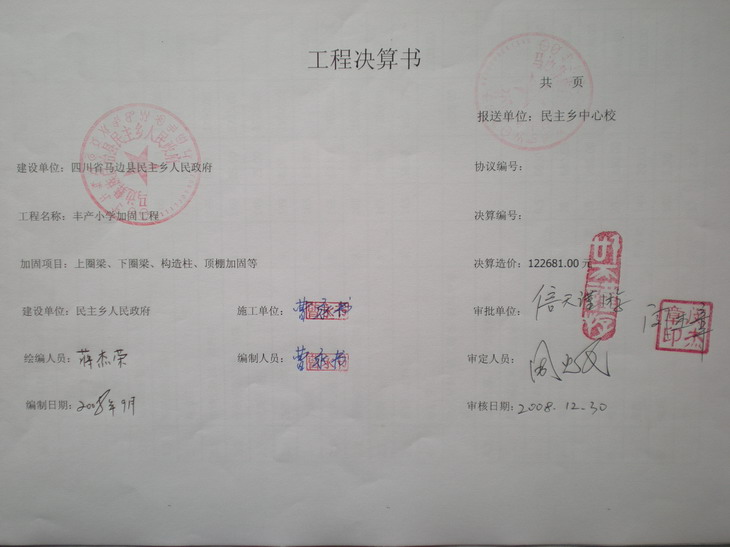 工程决算书
共 页
报送单位：民主乡中心校
建设单位：四川省马边县民主乡人民政府
协议编号：
工程名称：丰产小学加固工程
决算编号：
加固项目：上圈梁、下圈梁、构造柱、顶棚加固等
决算造价：122681.00 元
建设单位：民主乡人民政府 施工单位：
审批单位：
绘编人员：蒋杰荣 编制人员：
审定人员：
编制日期：2008年9月
审核日期：2008.12.30